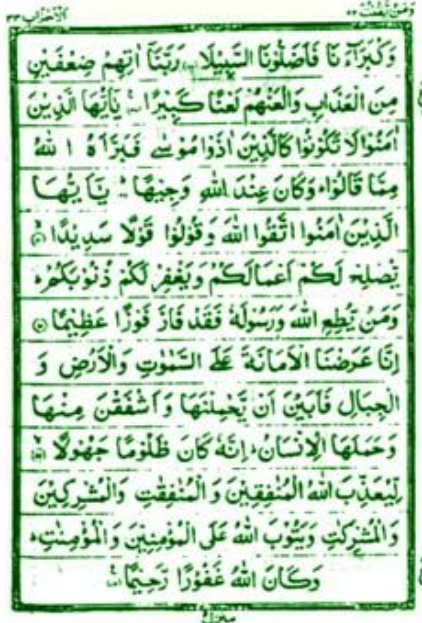 ومن يقنت ٢٢ الاحزاب ٣٣
وَكُبَرَآءَنَا فَاَضَلُّوْنَا السَّبِيْلَا رَبَّنَآ اٰتِهِمْ ضِعْفَيْنِ
مِنَ الْعَذَابِ وَالْعَنْهُمْ لَعْنًا كَبِيْرًا يٰٓاَيُّهَا الَّذِيْنَ
اٰمَنُوْا لَا تَكُوْنُوْا كَالَّذِيْنَ اٰذَوْا مُوْسٰى فَبَرَّاَهُ اللهُ
مِمَّا قَالُوْا وَكَانَ عِنْدَ اللهِ وَجِيْهًا يٰٓاَيُّهَا
الَّذِيْنَ اٰمَنُوا اتَّقُوا اللهَ وَقُوْلُوْا قَوْلًا سَدِيْدًا
يُّصْلِحْ لَكُمْ اَعْمَالَكُمْ وَيَغْفِرْ لَكُمْ ذُنُوْبَكُمْ
وَمَنْ يُّطِعِ اللهَ وَرَسُوْلَهٗ فَقَدْ فَازَ فَوْزًا عَظِيْمًا
اِنَّا عَرَضْنَا الْاَمَانَةَ عَلَى السَّمٰوٰتِ وَالْاَرْضِ وَ
الْجِبَالِ فَاَبَيْنَ اَنْ يَّحْمِلْنَهَا وَاَشْفَقْنَ مِنْهَا
وَحَمَلَهَا الْاِنْسَانُ اِنَّهٗ كَانَ ظَلُوْمًا جَهُوْلًا
لِّيُعَذِّبَ اللهُ الْمُنٰفِقِيْنَ وَالْمُنٰفِقٰتِ وَالْمُشْرِكِيْنَ
وَالْمُشْرِكٰتِ وَيَتُوْبَ اللهُ عَلَى الْمُؤْمِنِيْنَ وَالْمُؤْمِنٰتِ
وَكَانَ اللهُ غَفُوْرًا رَّحِيْمًا